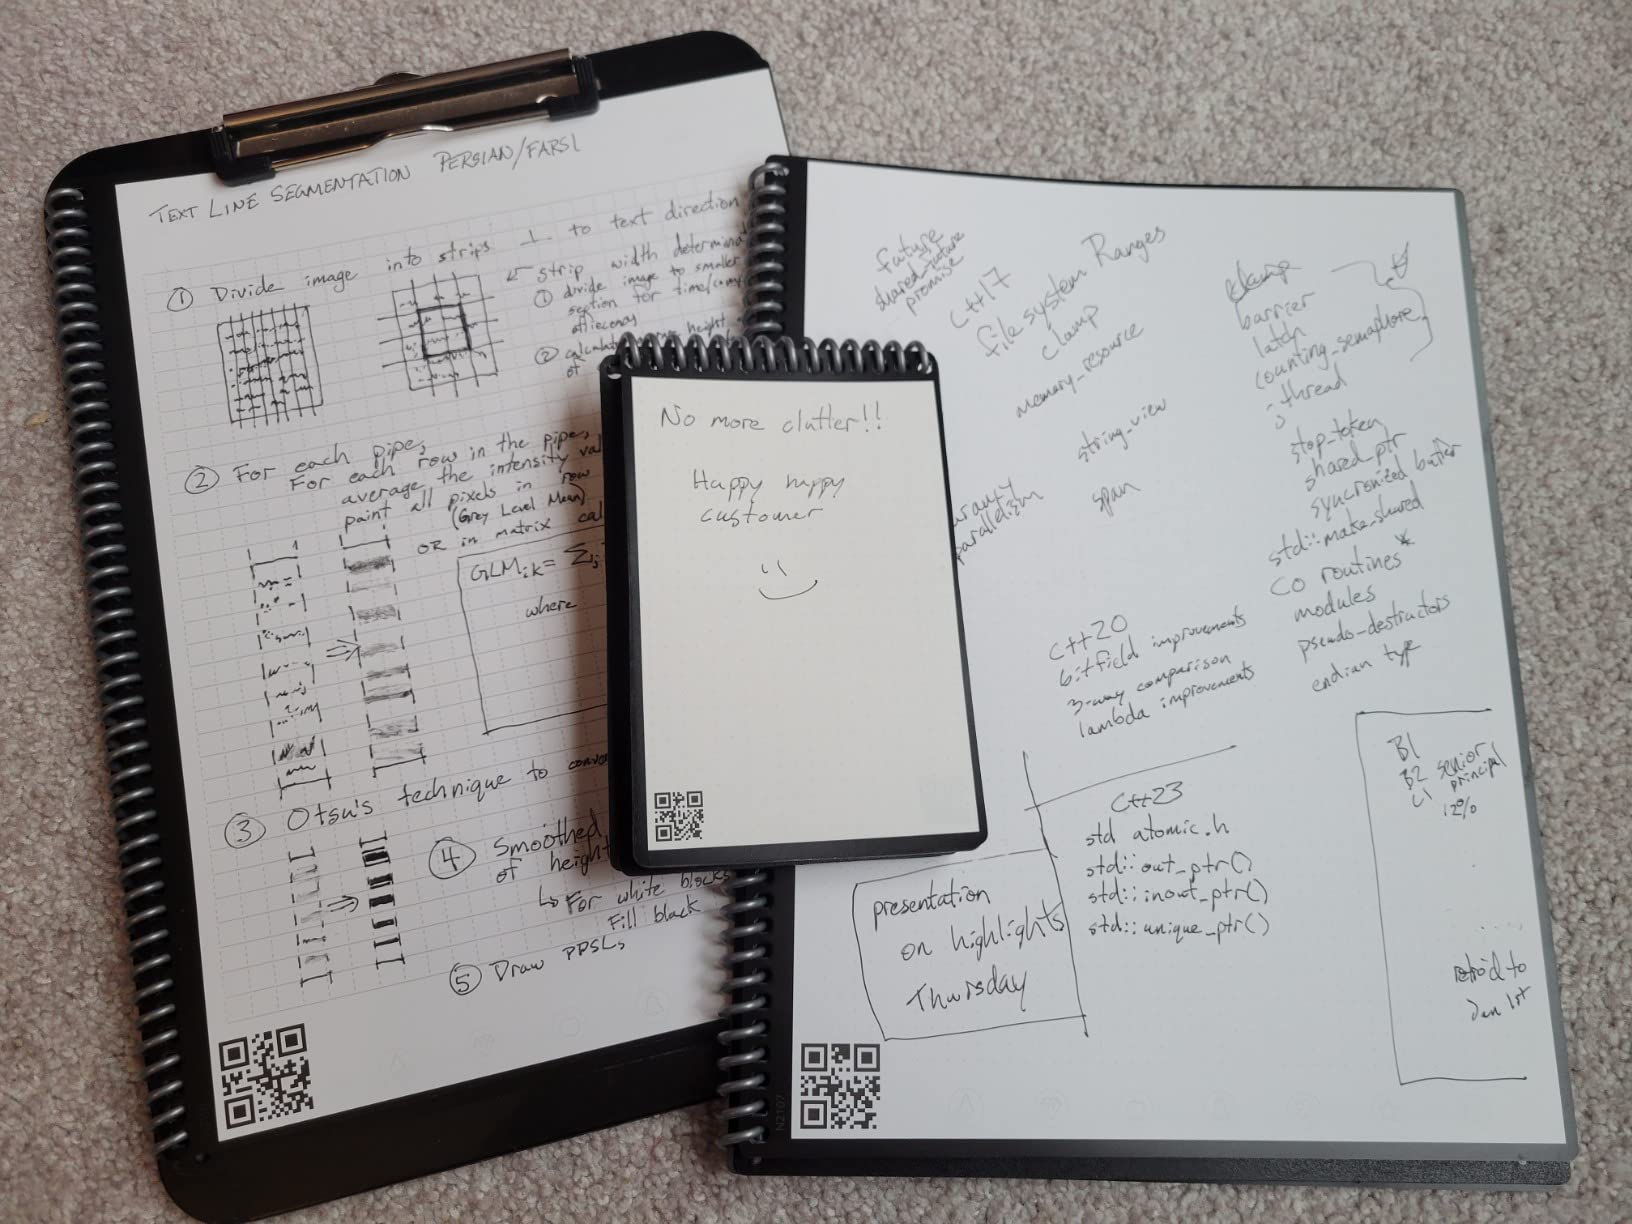 TEXT LINE SEGMENTATION PERSIAN/FARSI
① Divide image into strips ⊥ to text direction
← strip width determined
① divide image to smaller
section for time/comp
② calculate height
of
② For each pipe,
For each row in the pipe,
average the intensity val
paint all pixels in row
(Grey Level Mean)
OR in matrix cal
GLMik = Σj
where
③ Otsu's technique to conve
④ Smoothed
of height
↳ For white blocks
Fill black
⑤ Draw PPSLs
No more clutter!!
Happy happy
customer
future
shared_future
promise
C++17
file system Ranges
clamp
memory_resource
string_view
span
parallelism
C++20
bitfield improvements
3-way comparison
lambda improvements
barrier
latch
counting_semaphore
jthread
stop_token
shared_ptr
syncronized buffer
std::make_shared
CO routines*
modules
pseudo-destructors
endian type
C++23
std atomic.h
std::out_ptr()
std::inout_ptr()
std::unique_ptr()
presentation
on highlights
Thursday
B1
B2 senior
C1 principal
12%
retro'd to
Jan 1st
N2107